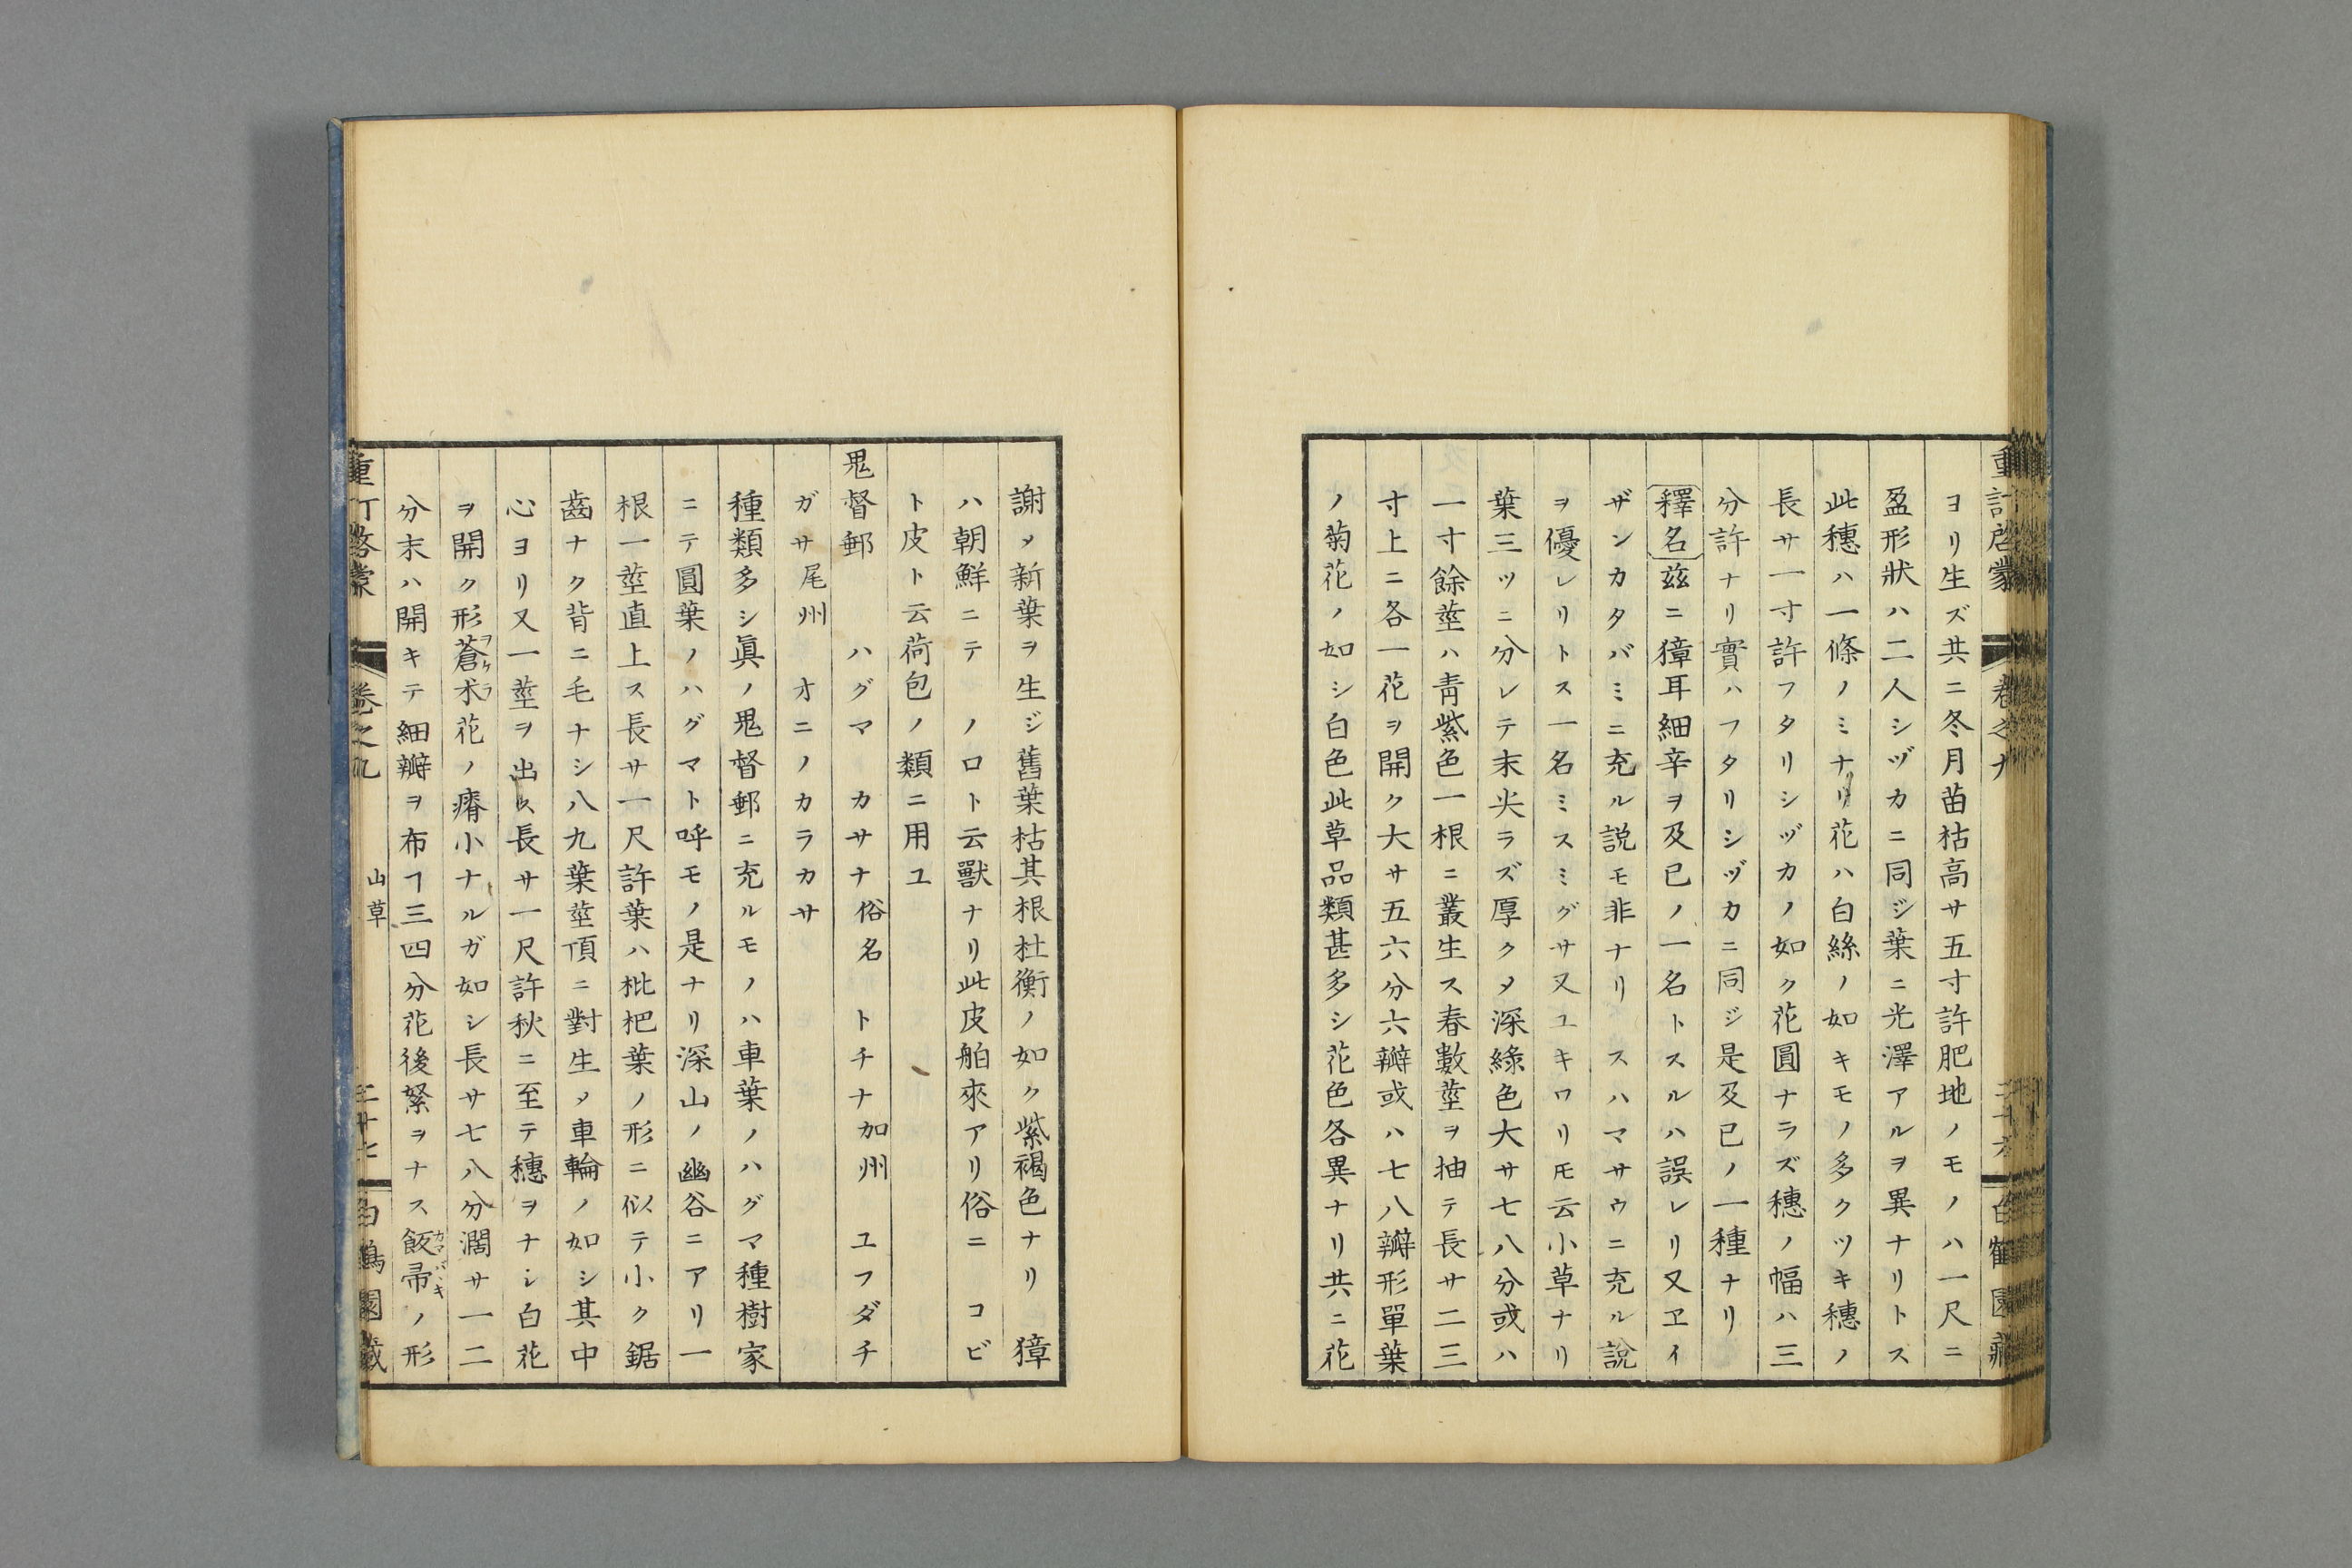 ヨリ生ズ共ニ冬月苗枯高サ五寸許肥地ノモノハ一尺ニ
盈形狀ハ二人シヅカニ同ジ葉ニ光澤アルヲ異ナリトス
此穗ハ一條ノミナリ花ハ白絲ノ如キモノ多クツキ穗ノ
長サ一寸許フタリシヅカノ如ク花圓ナラズ穗ノ幅ハ三
分許ナリ實ハフタリシヅカニ同ジ是及已ノ一種ナリ
釋名 兹ニ獐耳細辛ヲ及已ノ一名トスルハ誤レリ又ヱイ
ザンカタバミニ充ル説モ非ナリ スハマサウニ充ル說
ヲ優レリトス一名ミスミグサ又ユキワリトモ云小草ナリ
葉三ツニ分レテ末尖ラズ厚クシテ深緑色大サ七八分或ハ
一寸餘莖ハ青紫色一根ニ叢生ス春數莖ヲ抽テ長サ二三
寸上ニ各一花ヲ開ク大サ五六分六瓣或ハ七八瓣形單葉
ノ菊花ノ如シ白色此草品類甚多シ花色各異ナリ共ニ花
謝シテ新葉ヲ生ジ舊葉枯其根杜衡ノ如ク紫褐色ナリ 獐
ハ朝鮮ニテ ノロト云獸ナリ此皮舶來アリ俗ニ コビ
ト皮ト云荷包ノ類ニ用ユ
鬼督郵 ハグマ カサナ俗名 トチナ加州 ユフダチ
ガサ尾州 オニノカラカサ
種類多シ眞ノ鬼督郵ニ充ルモノハ車葉ノハグマ種樹家
ニテ圓葉ノハグマト呼モノ是ナリ深山ノ幽谷ニアリ一
根一莖直上ス長サ一尺許葉ハ枇杷葉ノ形ニ似テ小ク鋸
齒ナク背ニ毛ナシ八九葉莖頂ニ對生シテ車輪ノ如シ其中
心ヨリ又一莖ヲ出ス長サ一尺許秋ニ至テ穗ヲナシ白花
ヲ開ク形蒼朮花ノ瘠小ナルガ如シ長サ七八分濶サ一二
分末ハ開キテ細瓣ヲ布ヿ三四分花後絮ヲナス飯帚ノ形
重訂啓蒙 卷之九 山草 二十七 白鶴園藏